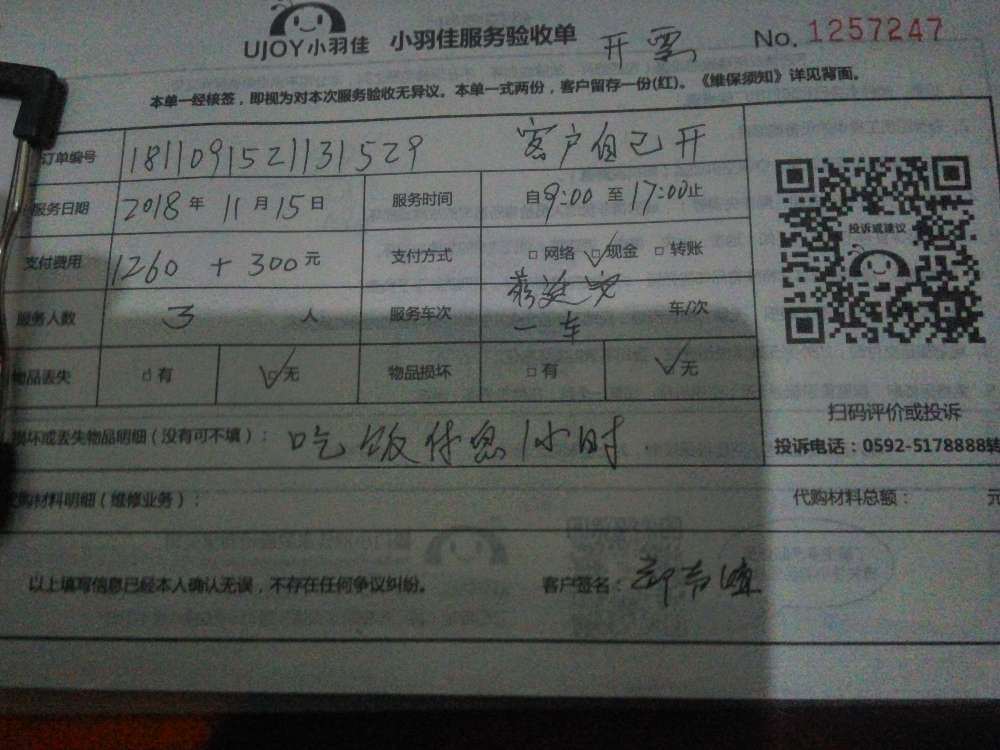 UJOY小羽佳 小羽佳服务验收单 开票 No. 1257247
本单一经核签，即视为对本次服务验收无异议。本单一式两份，客户留存一份(红)。《维保须知》详见背面。
订单编号 1811091521131529 客户自己开
服务日期 2018年 11月15日 服务时间 自9:00至17:00止
支付费用 1260 + 300元 支付方式 □网络 ☑现金 □转账
服务人数 3 人 服务车次 一车 车/次
物品丢失 □有 ☑无 物品损坏 □有 ☑无
损坏或丢失物品明细（没有可不填）： 吃饭休息1小时
代购材料明细（维修业务）： 代购材料总额： 元
以上填写信息已经本人确认无误，不存在任何争议纠纷。 客户签名：
投诉或建议
扫码评价或投诉
投诉电话：0592-5178888转